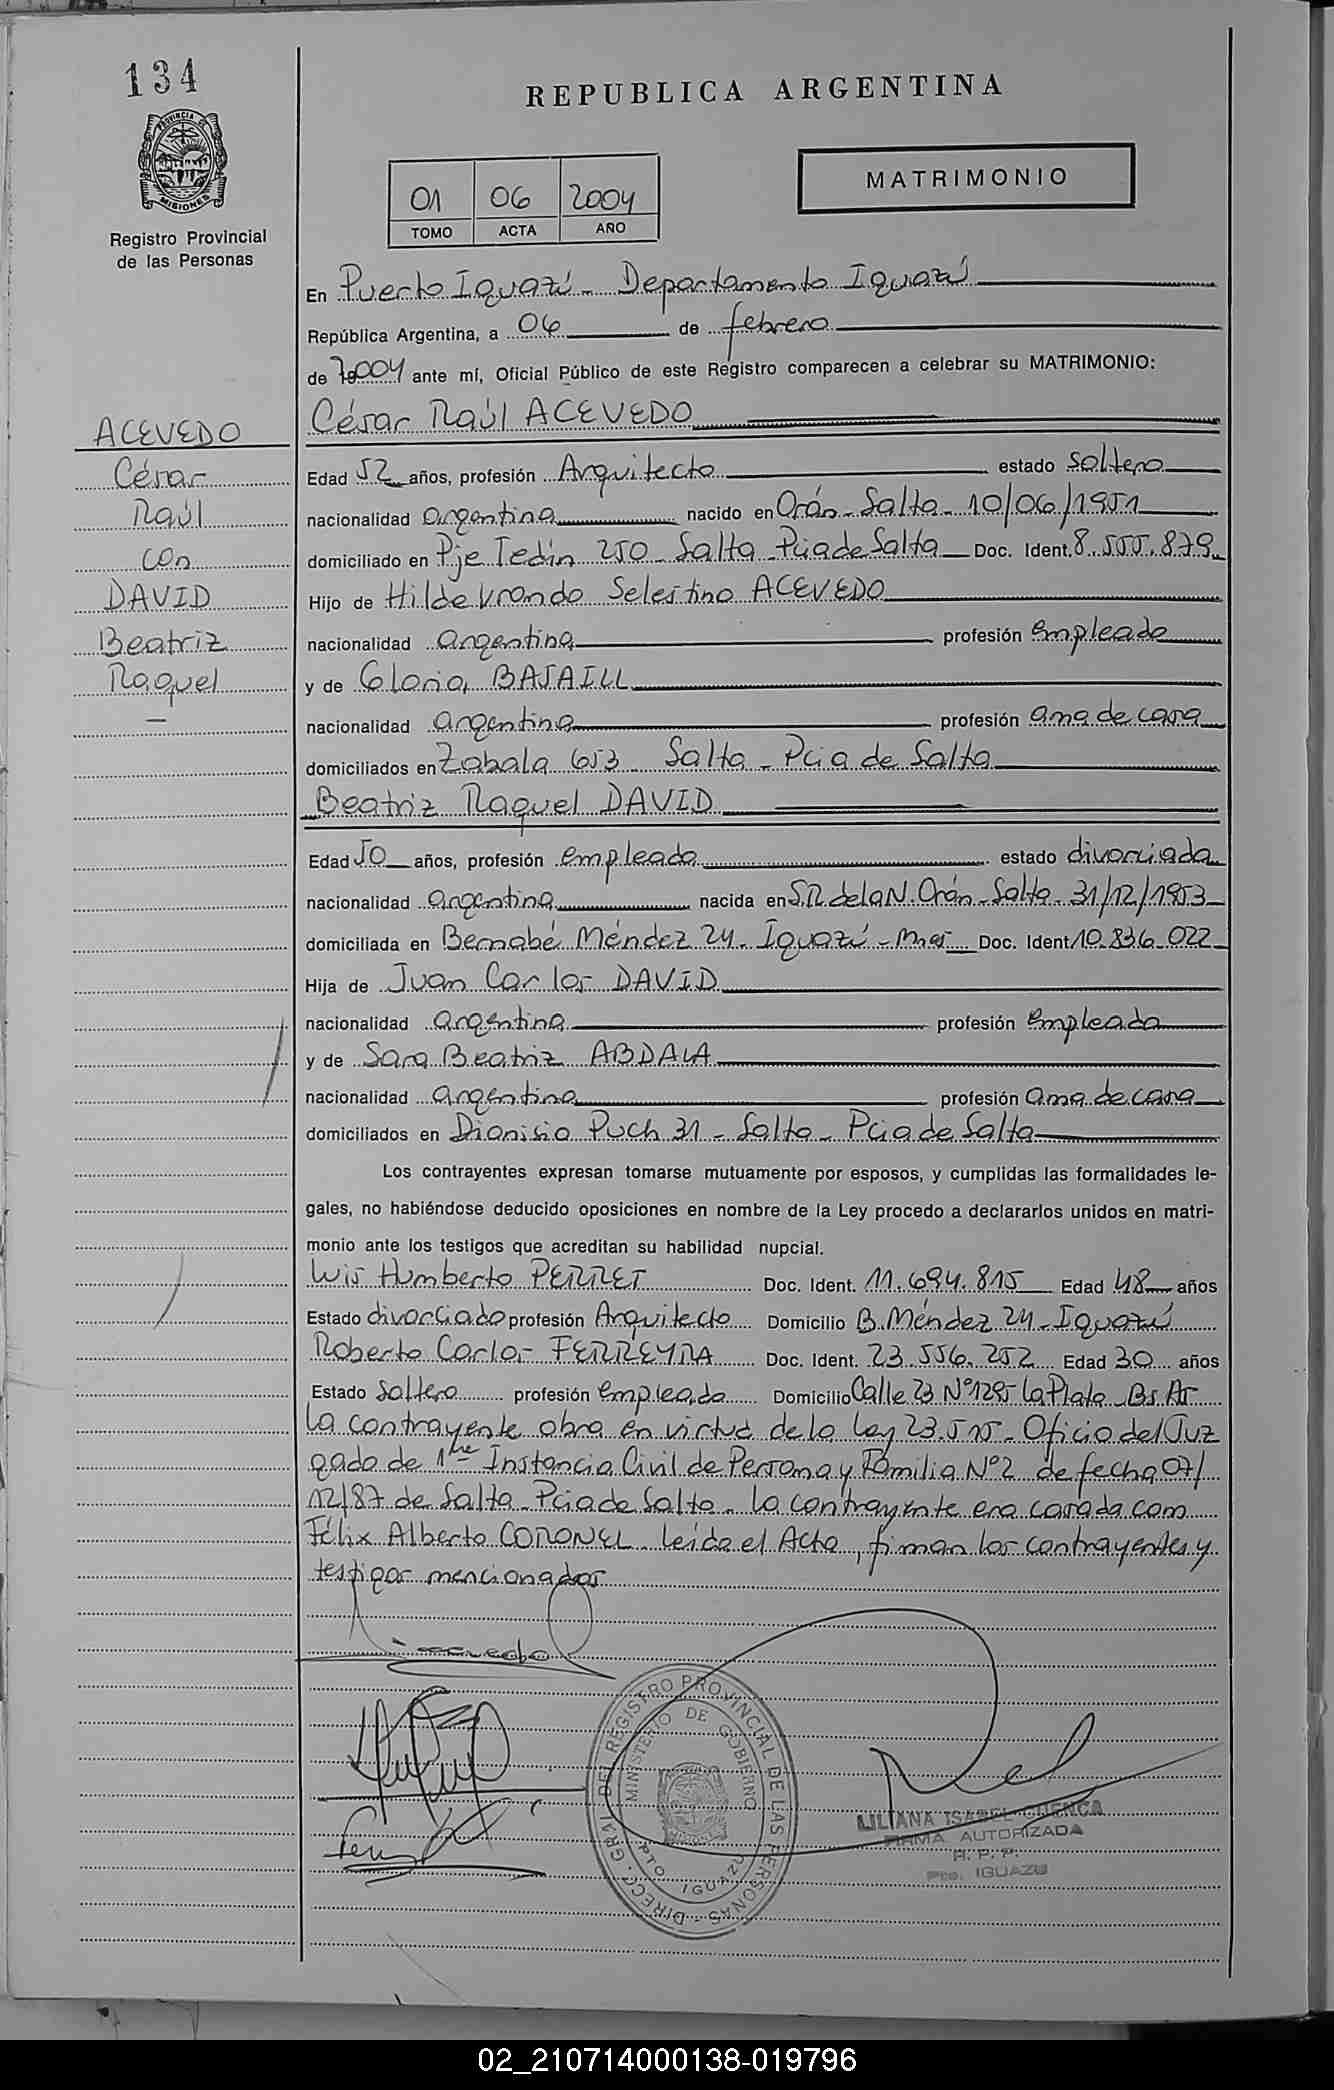 134
REPUBLICA ARGENTINA
PROVINCIA DE
MISIONES
Registro Provincial
de las Personas
MATRIMONIO
01 06 2004
TOMO ACTA AÑO
En Puerto Iguazú - Departamento Iguazú
República Argentina, a 06 de febrero
de 2004 ante mí, Oficial Público de este Registro comparecen a celebrar su MATRIMONIO:
César Raúl ACEVEDO
ACEVEDO
César
Raúl
con
DAVID
Beatriz
Raquel
Edad 52 años, profesión Arquitecto estado soltero
nacionalidad argentina nacido en Orán - Salta - 10/06/1951
domiciliado en Pje Tedín 250 - Salta - Pcia de Salta Doc. Ident. 8.555.879
Hijo de Hildevrando Selestino ACEVEDO
nacionalidad argentina profesión empleado
y de Gloria BASAILL
nacionalidad argentina profesión ama de casa
domiciliados en Zabala 653 - Salta - Pcia de Salta
Beatriz Raquel DAVID
Edad 50 años, profesión empleada estado divorciada
nacionalidad argentina nacida en S.R. de la N. Orán - Salta - 31/12/1953
domiciliada en Bernabé Méndez 24 - Iguazú - Mnes Doc. Ident 10.836.022
Hija de Juan Carlos DAVID
nacionalidad argentina profesión empleado
y de Sara Beatriz ABDALA
nacionalidad argentina profesión ama de casa
domiciliados en Dionisio Puch 31 - Salta - Pcia de Salta
Los contrayentes expresan tomarse mutuamente por esposos, y cumplidas las formalidades le-
gales, no habiéndose deducido oposiciones en nombre de la Ley procedo a declararlos unidos en matri-
monio ante los testigos que acreditan su habilidad nupcial.
Luis Humberto PERRET Doc. Ident. 11.694.815 Edad 48 años
Estado divorciado profesión Arquitecto Domicilio B. Méndez 24 - Iguazú
Roberto Carlos FERREYRA Doc. Ident. 23.556.252 Edad 30 años
Estado Soltero profesión empleado Domicilio Calle 23 Nº 1295 La Plata - Bs As
La contrayente obra en virtud de la Ley 23.515 - Oficio del Juz
gado de 1ra Instancia Civil de Persona y Familia Nº 2 de fecha 07/
12/87 de Salta - Pcia de Salta - La contrayente era casada com
Félix Alberto CORONEL. Leída el Acta, firman los contrayentes y
testigos mencionados
DIRECC. GRAL DEL REGISTRO PROVINCIAL DE LAS PERSONAS
MINISTERIO DE GOBIERNO
PTO IGUAZU
LILIANA ISABEL CUENCA
FIRMA AUTORIZADA
R. P. P.
Pto. IGUAZU
02_210714000138-019796